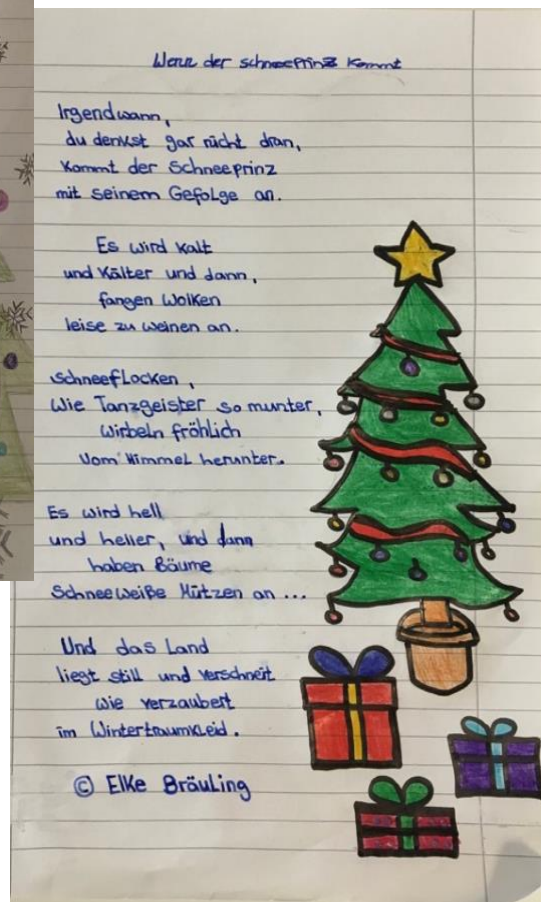 Wenn der schneePrinz kommt
Irgendwann,
du denkst gar nicht dran,
kommt der Schneeprinz
mit seinem Gefolge an.
Es wird kalt
und kälter und dann,
fangen Wolken
leise zu weinen an.
schneeflocken,
Wie Tanzgeister so munter,
Wirbeln fröhlich
Vom Himmel herunter.
Es wird hell
und heller, und dann
haben Bäume
Schneeweiße Mützen an ...
Und das Land
liegt still und verschneit
wie verzaubert
im Wintertraumkleid.
© Elke Bräuling